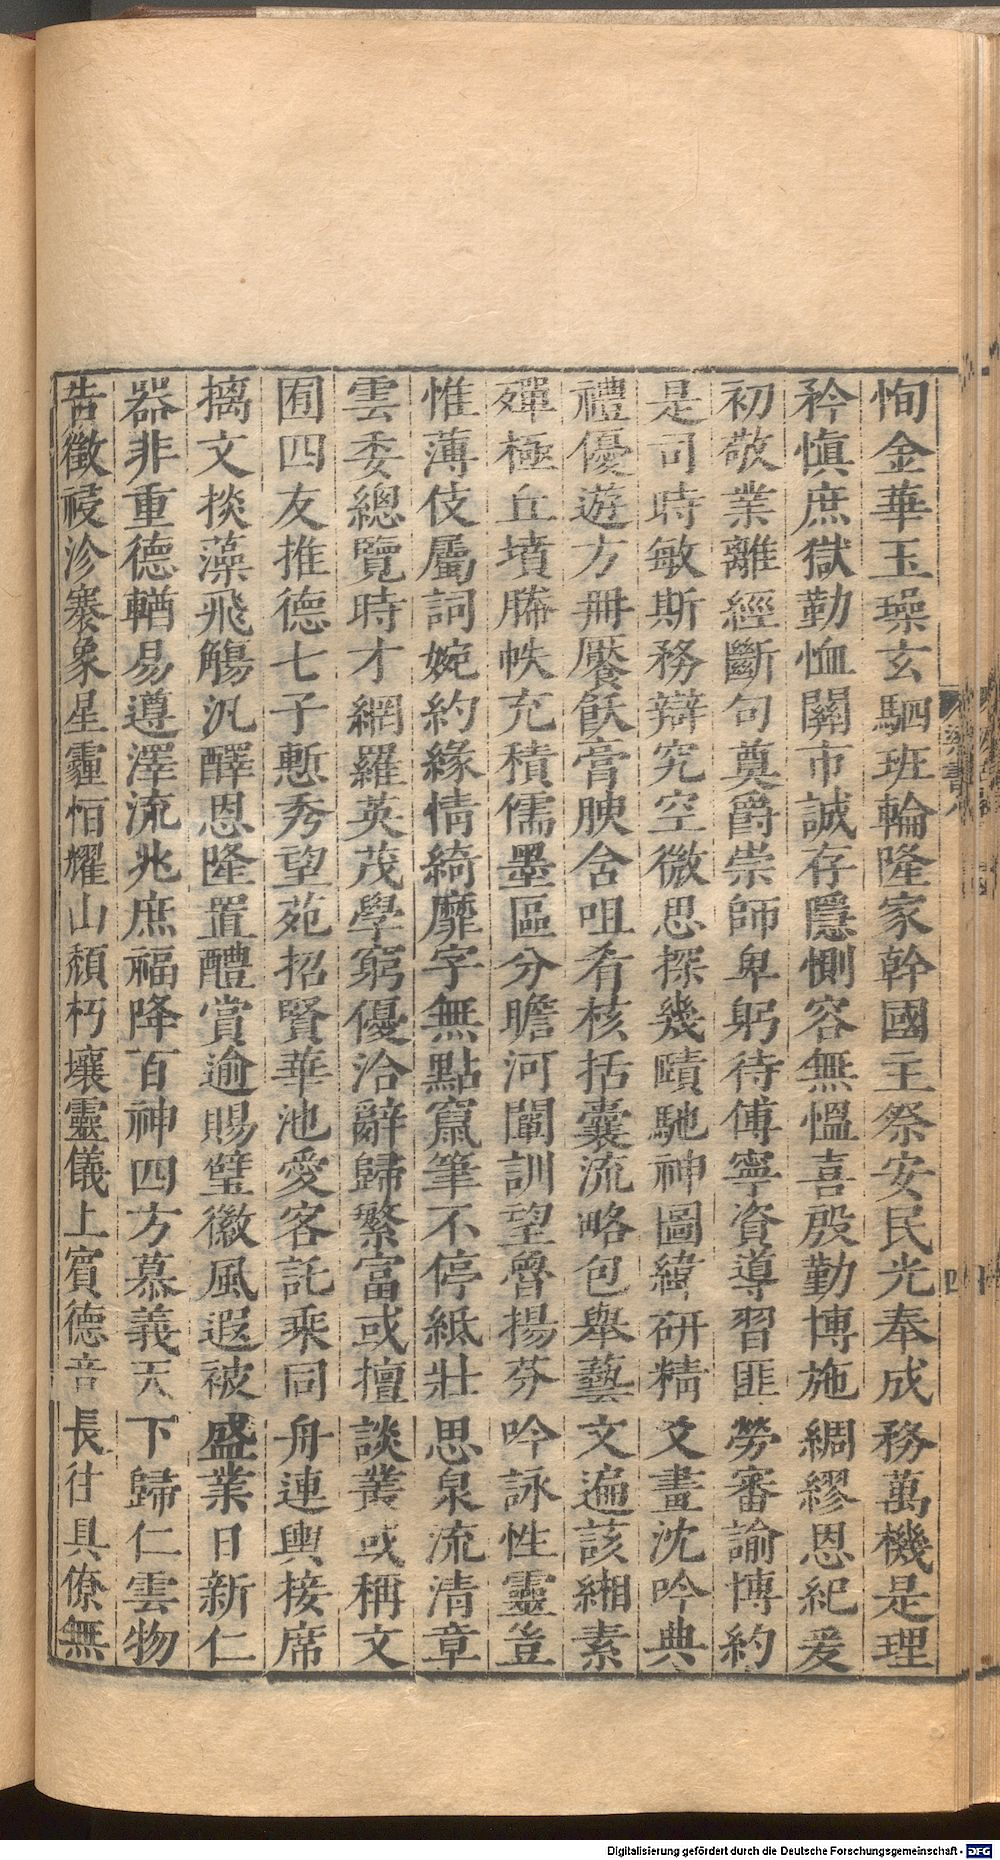 恂金華玉璪玄駟班輪隆家幹國主祭安民光奉成務萬機是理
矜慎庶獄勤恤關市誠存隱惻容無慍喜殷勤博施綢繆恩紀爰
初敬業離經斷句奠爵崇師卑躬待傅寧資導習匪勞審諭博約
是司時敏斯務辯究空微思探幾賾馳神圖緯研精爻畫沈吟典
禮優遊方冊饜飫膏腴含咀肴核括囊流略包舉藝文遍該緗素
殫極丘墳勝帙充積儒墨區分瞻河闡訓望魯揚芬吟詠性靈豈
惟薄伎屬詞婉約緣情綺靡字無點竄筆不停紙壯思泉流清章
雲委總覽時才網羅英茂學窮優洽辭歸繁富或擅談叢或稱文
囿四友推德七子慙秀望苑招賢華池愛客託乘同舟連輿接席
摛文掞藻飛觴汎醳恩隆置醴賞逾賜璧徽風遐被盛業日新仁
器非重德輶易遵澤流兆庶福降百神四方慕義天下歸仁雲物
告徵祲沴褰象星霾恒耀山頹朽壤靈儀上賓德音長往具僚無
梁書八
四
Digitalisierung gefördert durch die Deutsche Forschungsgemeinschaft - DFG